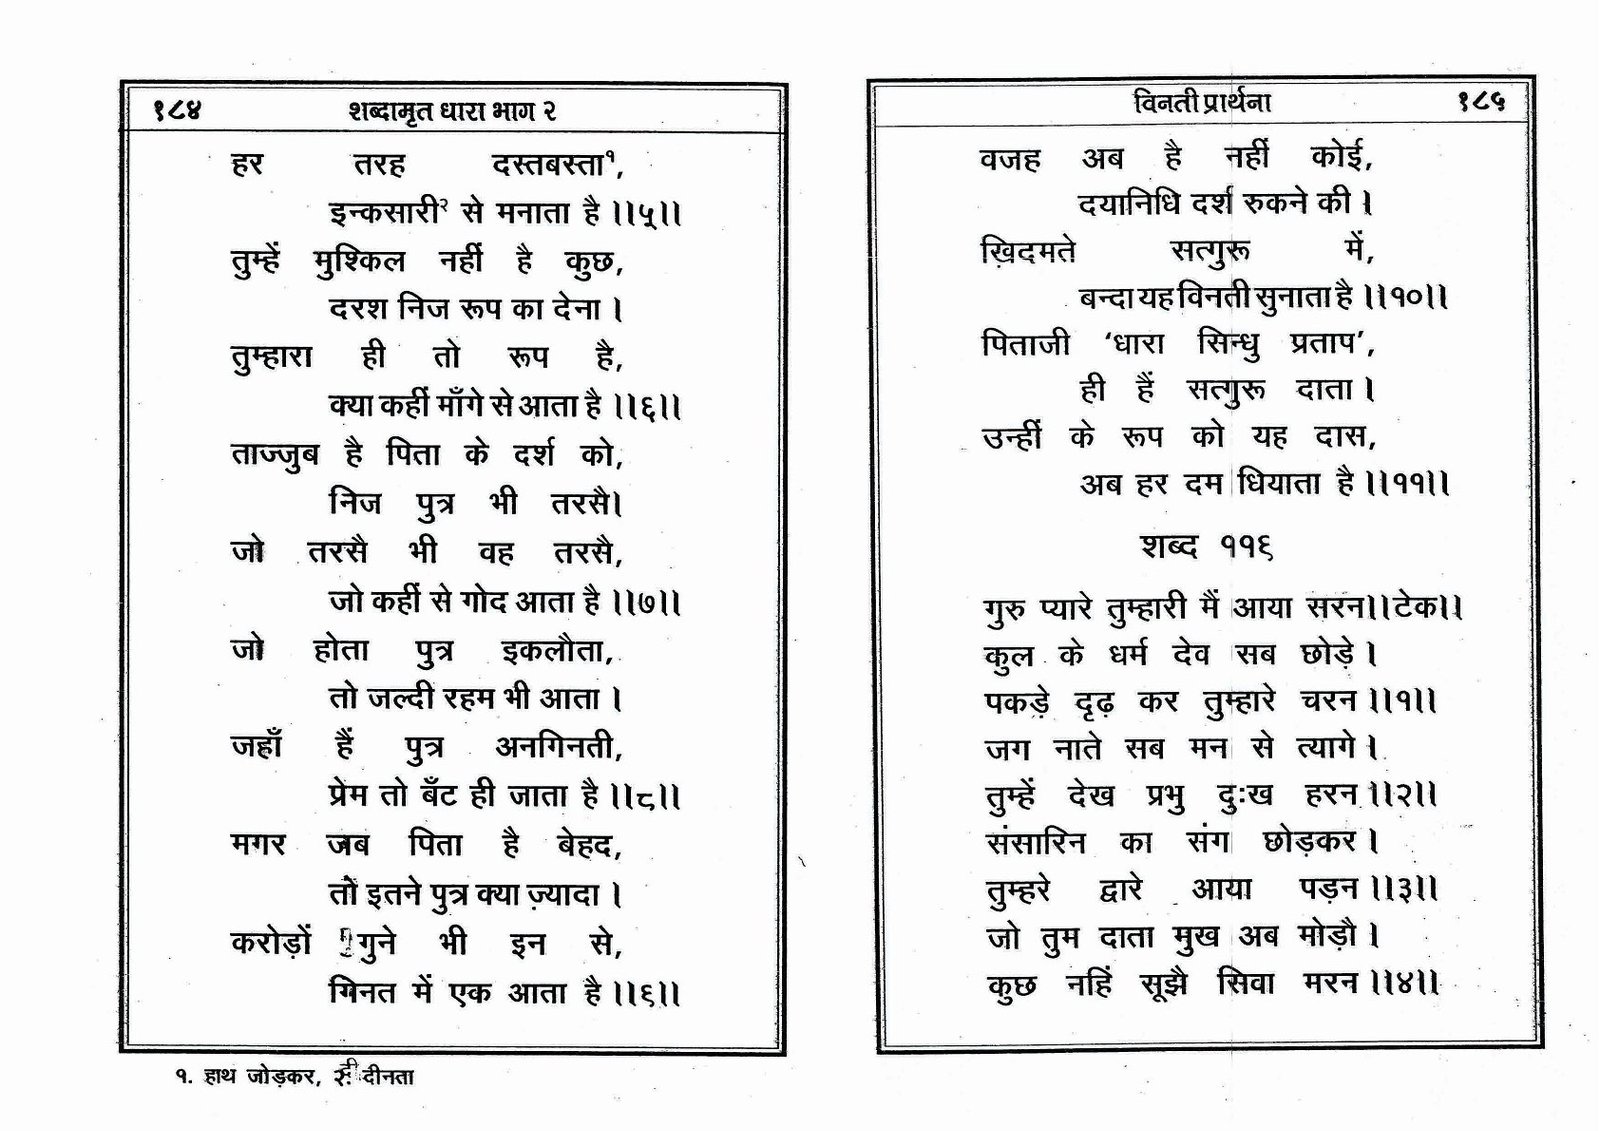 १८४ शब्दामृत धारा भाग २
हर तरह दस्तबस्ता१,
इन्कसारी२ से मनाता है ।।५।।
तुम्हें मुश्किल नहीं है कुछ,
दरश निज रूप का देना ।
तुम्हारा ही तो रूप है,
क्या कहीं माँगे से आता है ।।६।।
ताज्जुब है पिता के दर्श को,
निज पुत्र भी तरसै।
जो तरसै भी वह तरसै,
जो कहीं से गोद आता है ।।७।।
जो होता पुत्र इकलौता,
तो जल्दी रहम भी आता ।
जहाँ हैं पुत्र अनगिनती,
प्रेम तो बँट ही जाता है ।।८।।
मगर जब पिता है बेहद,
तो इतने पुत्र क्या ज़्यादा ।
करोड़ों गुने भी इन से,
गिनत में एक आता है ।।९।।
१. हाथ जोड़कर, २. दीनता
विनती प्रार्थना १८५
वजह अब है नहीं कोई,
दयानिधि दर्श रुकने की ।
ख़िदमते सत्गुरू में,
बन्दा यह विनती सुनाता है ।।१०।।
पिताजी ‘धारा सिन्धु प्रताप’,
ही हैं सत्गुरू दाता ।
उन्हीं के रूप को यह दास,
अब हर दम धियाता है ।।११।।
शब्द ११६
गुरु प्यारे तुम्हारी मैं आया सरन।।टेक।।
कुल के धर्म देव सब छोड़े ।
पकड़े दृढ़ कर तुम्हारे चरन ।।१।।
जग नाते सब मन से त्यागे ।
तुम्हें देख प्रभु दुःख हरन ।।२।।
संसारिन का संग छोड़कर ।
तुम्हरे द्वारे आया पड़न ।।३।।
जो तुम दाता मुख अब मोड़ौ ।
कुछ नहिं सूझै सिवा मरन ।।४।।